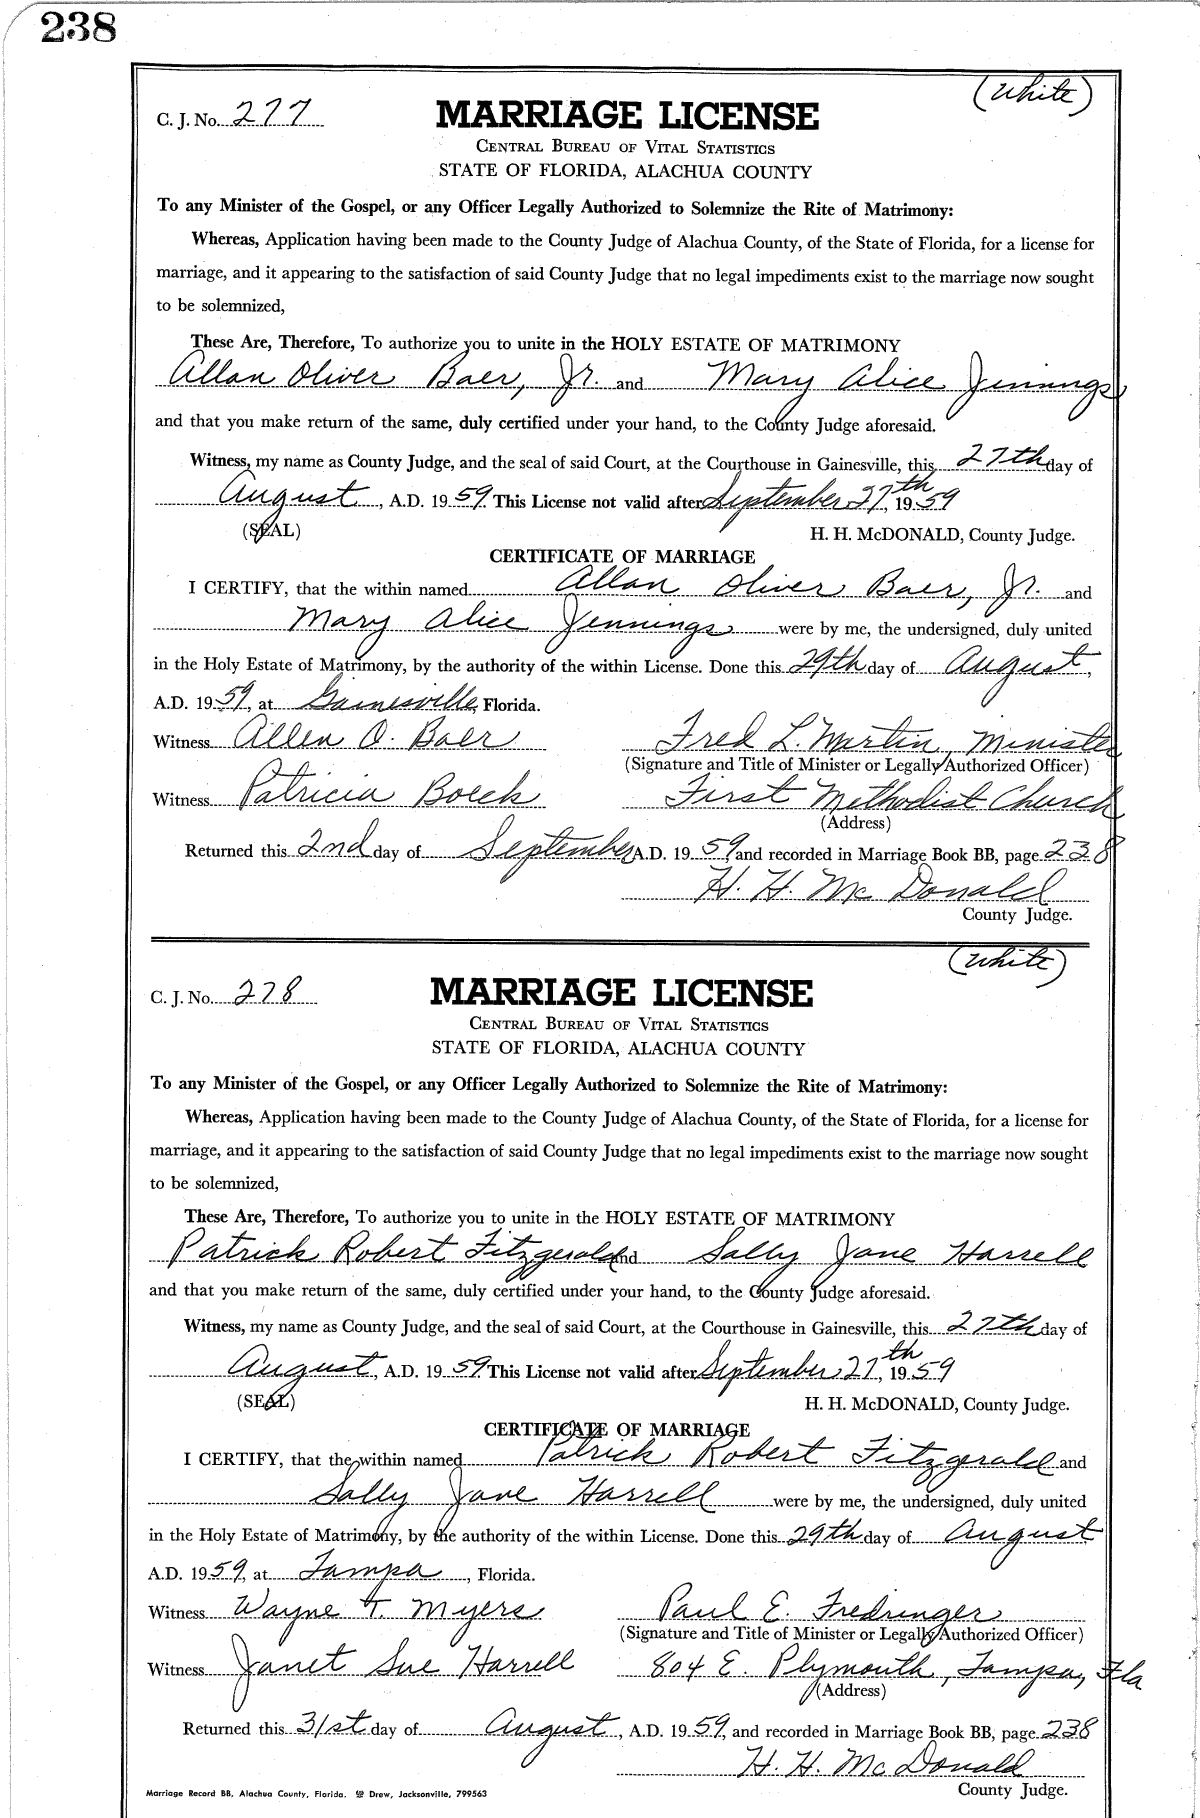 238
(White)
C. J. No. 277
MARRIAGE LICENSE
CENTRAL BUREAU OF VITAL STATISTICS
STATE OF FLORIDA, ALACHUA COUNTY
To any Minister of the Gospel, or any Officer Legally Authorized to Solemnize the Rite of Matrimony:
Whereas, Application having been made to the County Judge of Alachua County, of the State of Florida, for a license for
marriage, and it appearing to the satisfaction of said County Judge that no legal impediments exist to the marriage now sought
to be solemnized,
These Are, Therefore, To authorize you to unite in the HOLY ESTATE OF MATRIMONY
Allan Oliver Baer, Jr. and Mary Alice Jennings
and that you make return of the same, duly certified under your hand, to the County Judge aforesaid.
Witness, my name as County Judge, and the seal of said Court, at the Courthouse in Gainesville, this 27th day of
August, A.D. 1959. This License not valid after September 27th, 1959
(SEAL) H. H. McDONALD, County Judge.
CERTIFICATE OF MARRIAGE
I CERTIFY, that the within named Allan Oliver Baer, Jr. and
Mary Alice Jennings were by me, the undersigned, duly united
in the Holy Estate of Matrimony, by the authority of the within License. Done this 29th day of August,
A.D. 1959, at Gainesville, Florida.
Witness Allen O. Baer Fred L. Martin, Minister
(Signature and Title of Minister or Legally Authorized Officer)
Witness Patricia Boeck First Methodist Church
(Address)
Returned this 2nd day of September A.D. 1959, and recorded in Marriage Book BB, page 238
H. H. McDonald
County Judge.
(White)
C. J. No. 278
MARRIAGE LICENSE
CENTRAL BUREAU OF VITAL STATISTICS
STATE OF FLORIDA, ALACHUA COUNTY
To any Minister of the Gospel, or any Officer Legally Authorized to Solemnize the Rite of Matrimony:
Whereas, Application having been made to the County Judge of Alachua County, of the State of Florida, for a license for
marriage, and it appearing to the satisfaction of said County Judge that no legal impediments exist to the marriage now sought
to be solemnized,
These Are, Therefore, To authorize you to unite in the HOLY ESTATE OF MATRIMONY
Patrick Robert Fitzgerald and Sally Jane Harrell
and that you make return of the same, duly certified under your hand, to the County Judge aforesaid.
Witness, my name as County Judge, and the seal of said Court, at the Courthouse in Gainesville, this 27th day of
August, A.D. 1959. This License not valid after September 27th, 1959
(SEAL) H. H. McDONALD, County Judge.
CERTIFICATE OF MARRIAGE
I CERTIFY, that the within named Patrick Robert Fitzgerald and
Sally Jane Harrell were by me, the undersigned, duly united
in the Holy Estate of Matrimony, by the authority of the within License. Done this 29th day of August
A.D. 1959, at Tampa, Florida.
Witness Wayne T. Myers Paul E. Fredringer
(Signature and Title of Minister or Legally Authorized Officer)
Witness Janet Sue Harrell 804 E. Plymouth, Tampa, Fla
(Address)
Returned this 31st day of August, A.D. 1959, and recorded in Marriage Book BB, page 238
H. H. McDonald
County Judge.
Marriage Record BB, Alachua County, Florida. Drew, Jacksonville, 799563